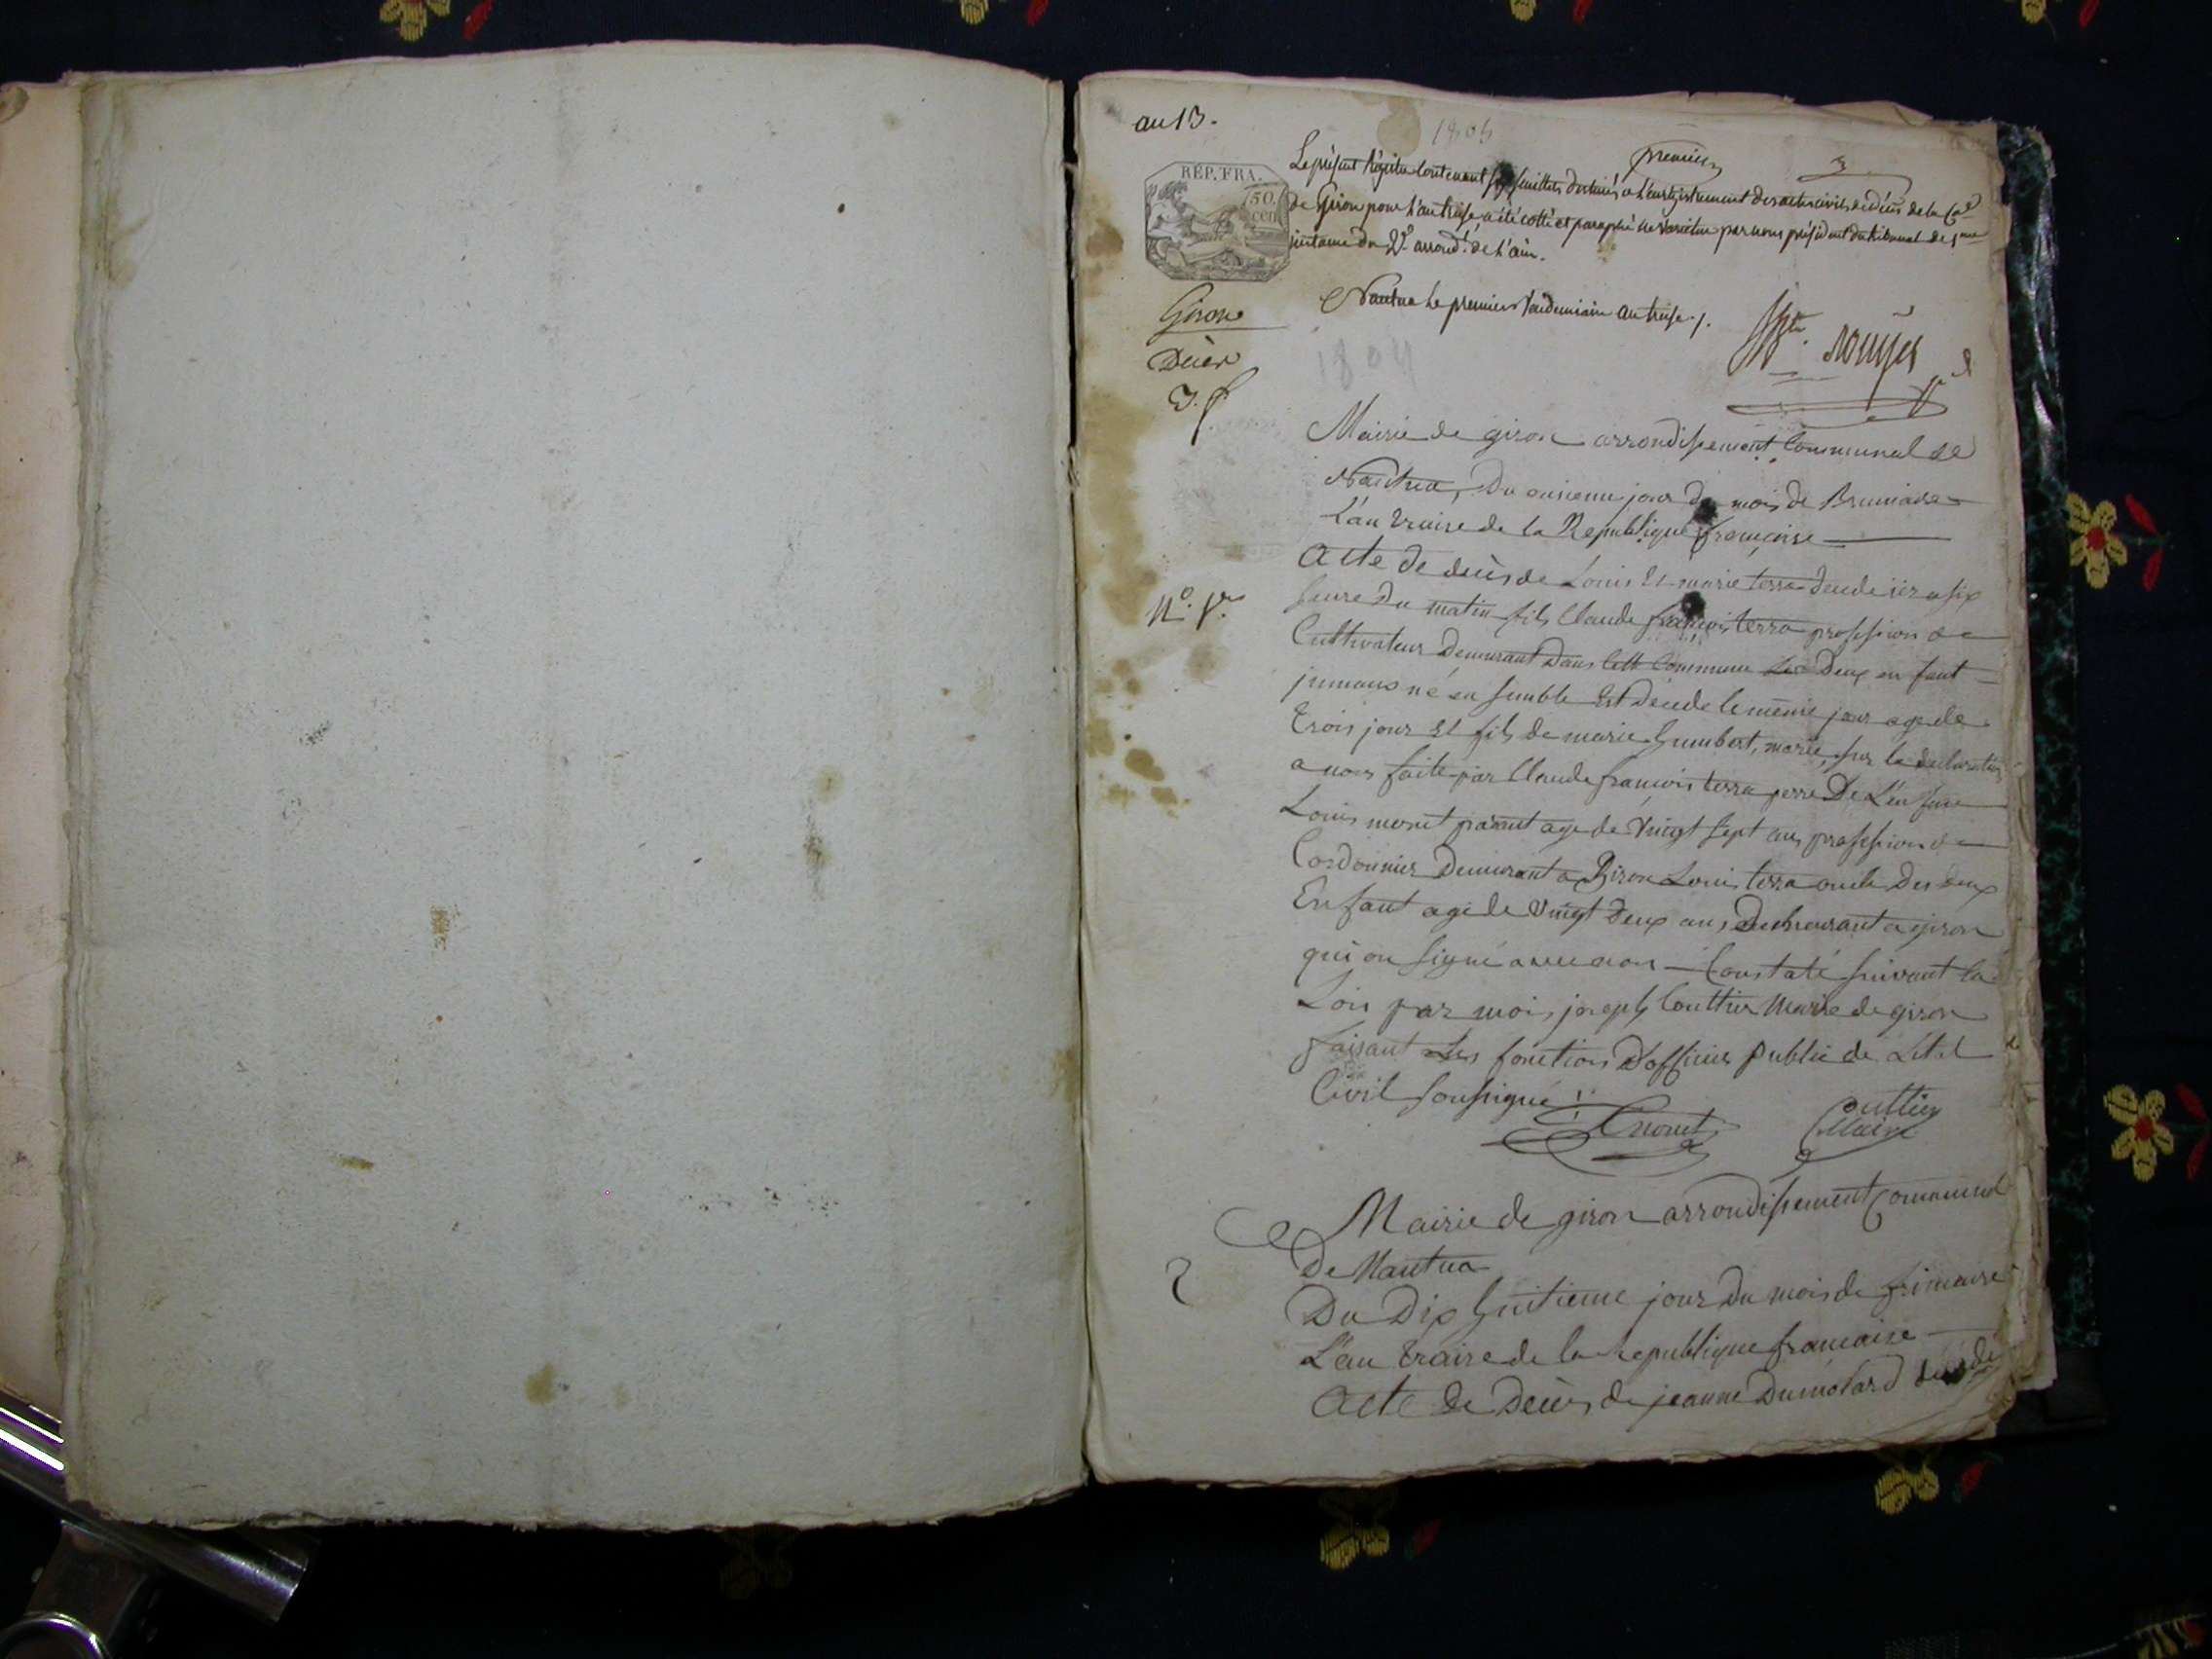 an 13.
1805
premier
3
RÉP. FRA.
50. cen
Le présent Régistre Contenant feuillets destinés a L'enregistrement des actes civils de décès de la
de Giron pour L'an treise a été cotté et paraphé ne Varietur par nous président du tribunal de 1ere
jnstance du 2e. arrond.t de L'ain.
Nantua Le premier Vandemiaire an treise ./.
Giron
Décès
3. f.
1804
Mairie de giron arrondissement Communal de
Nantua, Du onsieme jour du mois de Brumaire
L'an traise de la Republique françoise
N.o 1.er
Acte de decès de Louis Et marie terra decede ier a six
heure du matin fils Claude françois terra profession de
Cultivateur Demurant Dans Cett Commune Les Deux en fant
jumaus né en semble Est Décede le meme jour age de
trois jour Et fils de marie humbert, marié, sur la declaration
a nous faite par Claude francois terra perre De L'en fant
Louis monet parant age de Vingt sept ans profession de
Cordonnier Demurant a Giron Louis terra oncle Des deux
En fant agé de Vingt Deux ans Demeurant a giron
qui on signé avec nous Constaté suivant la
Loi par moi, joseph Couttier Maire de giron
faisant Les fonction D'officier Public de L'etat
Civil soussigné
Monet
Couttier
Maire
2
Mairie de giron arrondissement Communal
De Nantua
Du Dix huitieme jour Du mois de frimaire
L'an traise de la Republique francaise
Acte de Decès de jeanne Dumolard décédé